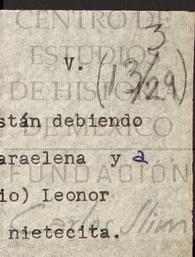 CENTRO DE
ESTUDIOS
DE HISTORIA
DE MÉXICO
FUNDACIÓN
Carlos Slim
3
V. (13/29)
stán debiendo
araelena y a
io) Leonor
nietecita.